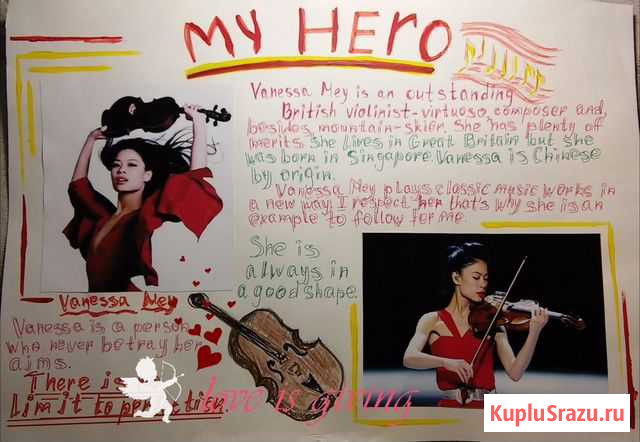 MY HERO
Vanessa Mey is an outstanding
British violinist-virtuoso, composer and,
besides mountain-skier. She has plenty of
merits. She lives in Great Britain but she
was born in Singapore. Vanessa is Chinese
by origin.
Vanessa Mey plays classic music works in
a new way. I respect her that's why she is an
example to follow for me.
She is
always in
a good shape.
Vanessa Mey
Vanessa is a person
who never betray her
aims.
There is
limit to perfection
Love is giving
KupluSrazu.ru